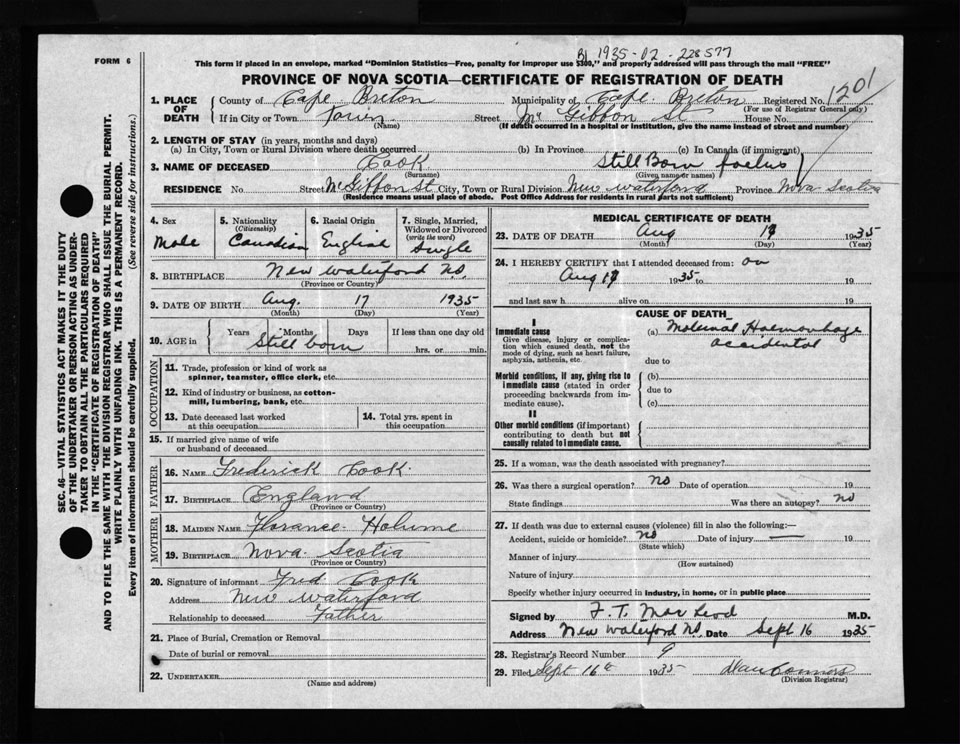 1935-02-228577
FORM 6
This form if placed in an envelope, marked "Dominion Statistics—Free, penalty for improper use $300," and properly addressed will pass through the mail "FREE"
PROVINCE OF NOVA SCOTIA—CERTIFICATE OF REGISTRATION OF DEATH
1201
1. PLACE OF DEATH County of Cape Breton Municipality of Cape Breton Registered No.
(For use of Registrar General only)
If in City or Town Town Street Mc Gibbon St House No.
(Name) (If death occurred in a hospital or institution, give the name instead of street and number)
2. LENGTH OF STAY (in years, months and days)
(a) In City, Town or Rural Division where death occurred (b) In Province (c) In Canada (if immigrant)
3. NAME OF DECEASED Cook Still Born foetus
(Surname) (Given name or names)
RESIDENCE No. Street McGiffon St City, Town or Rural Division New Waterford Province Nova Scotia
(Residence means usual place of abode. Post Office Address for residents in rural parts not sufficient)
SEC. 46—VITAL STATISTICS ACT MAKES IT THE DUTY
OF THE UNDERTAKER OR PERSON ACTING AS UNDER-
TAKER TO OBTAIN ALL THE PARTICULARS REQUIRED
IN THE "CERTIFICATE OF REGISTRATION OF DEATH"
AND TO FILE THE SAME WITH THE DIVISION REGISTRAR WHO SHALL ISSUE THE BURIAL PERMIT.
WRITE PLAINLY WITH UNFADING INK. THIS IS A PERMANENT RECORD.
Every item of information should be carefully supplied. (See reverse side for instructions.)
4. Sex 5. Nationality 6. Racial Origin 7. Single, Married,
(Citizenship) Widowed or Divorced
(write the word)
Male Canadian English Single
8. BIRTHPLACE New Waterford N.S.
(Province or Country)
9. DATE OF BIRTH Aug. 17 1935
(Month) (Day) (Year)
10. AGE in Years Months Days If less than one day old
Still born hrs. or min.
OCCUPATION
11. Trade, profession or kind of work as
spinner, teamster, office clerk, etc.
12. Kind of industry or business, as cotton-
mill, lumbering, bank, etc.
13. Date deceased last worked
at this occupation
14. Total yrs. spent in
this occupation
15. If married give name of wife
or husband of deceased
FATHER
16. NAME Frederick Cook
17. BIRTHPLACE England
(Province or Country)
MOTHER
18. MAIDEN NAME Florance Holume
19. BIRTHPLACE Nova Scotia
(Province or Country)
20. Signature of informant Fred Cook
Address New Waterford
Relationship to deceased Father
21. Place of Burial, Cremation or Removal
Date of burial or removal
22. UNDERTAKER
(Name and address)
MEDICAL CERTIFICATE OF DEATH
23. DATE OF DEATH Aug 17 1935
(Month) (Day) (Year)
24. I HEREBY CERTIFY that I attended deceased from: on
Aug 17 1935 to 19
and last saw h alive on 19
CAUSE OF DEATH
I
Immediate cause (a) Maternal Haemorrhage
accidental
Give disease, injury or complica-
tion which caused death, not the
mode of dying, such as heart failure,
asphyxia, asthenia, etc.
due to
Morbid conditions, if any, giving rise to
immediate cause (stated in order
proceeding backwards from im-
mediate cause).
(b)
due to
(c)
II
Other morbid conditions (if important)
contributing to death but not
causally related to immediate cause.
25. If a woman, was the death associated with pregnancy?
26. Was there a surgical operation? no Date of operation 19
State findings Was there an autopsy? no
27. If death was due to external causes (violence) fill in also the following:—
Accident, suicide or homicide? no Date of injury — 19
(State which)
Manner of injury
(How sustained)
Nature of injury
Specify whether injury occurred in industry, in home, or in public place
Signed by F. T. MacLeod M.D.
Address New Waterford N.S. Date Sept 16 1935
28. Registrar's Record Number 9
29. Filed Sept 16th 1935
(Division Registrar)